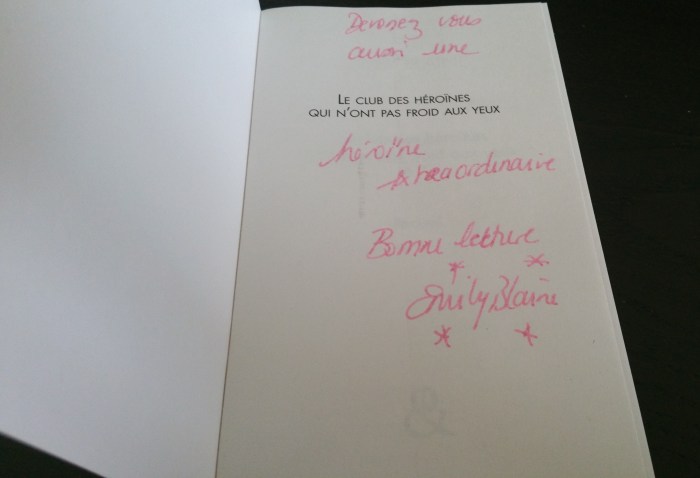 Devenez vous
aussi une
LE CLUB DES HÉROÏNES
QUI N'ONT PAS FROID AUX YEUX
héroïne
extraordinaire
Bonne lecture
Emily Blaine